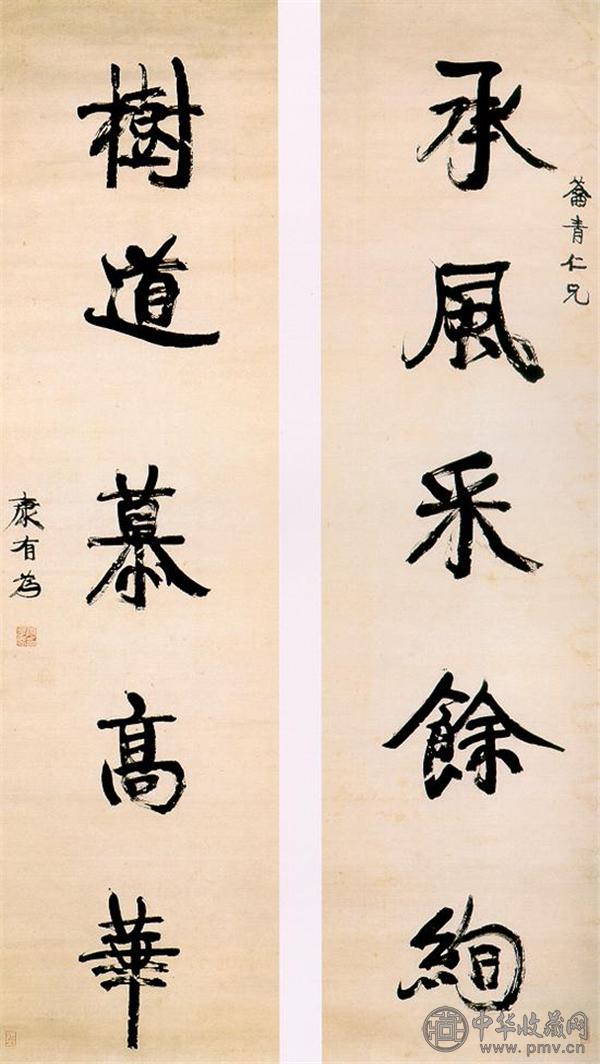 承風采餘絢
青仁兄
樹道慕高華
康有為
中华收藏网
www.pmv.cn